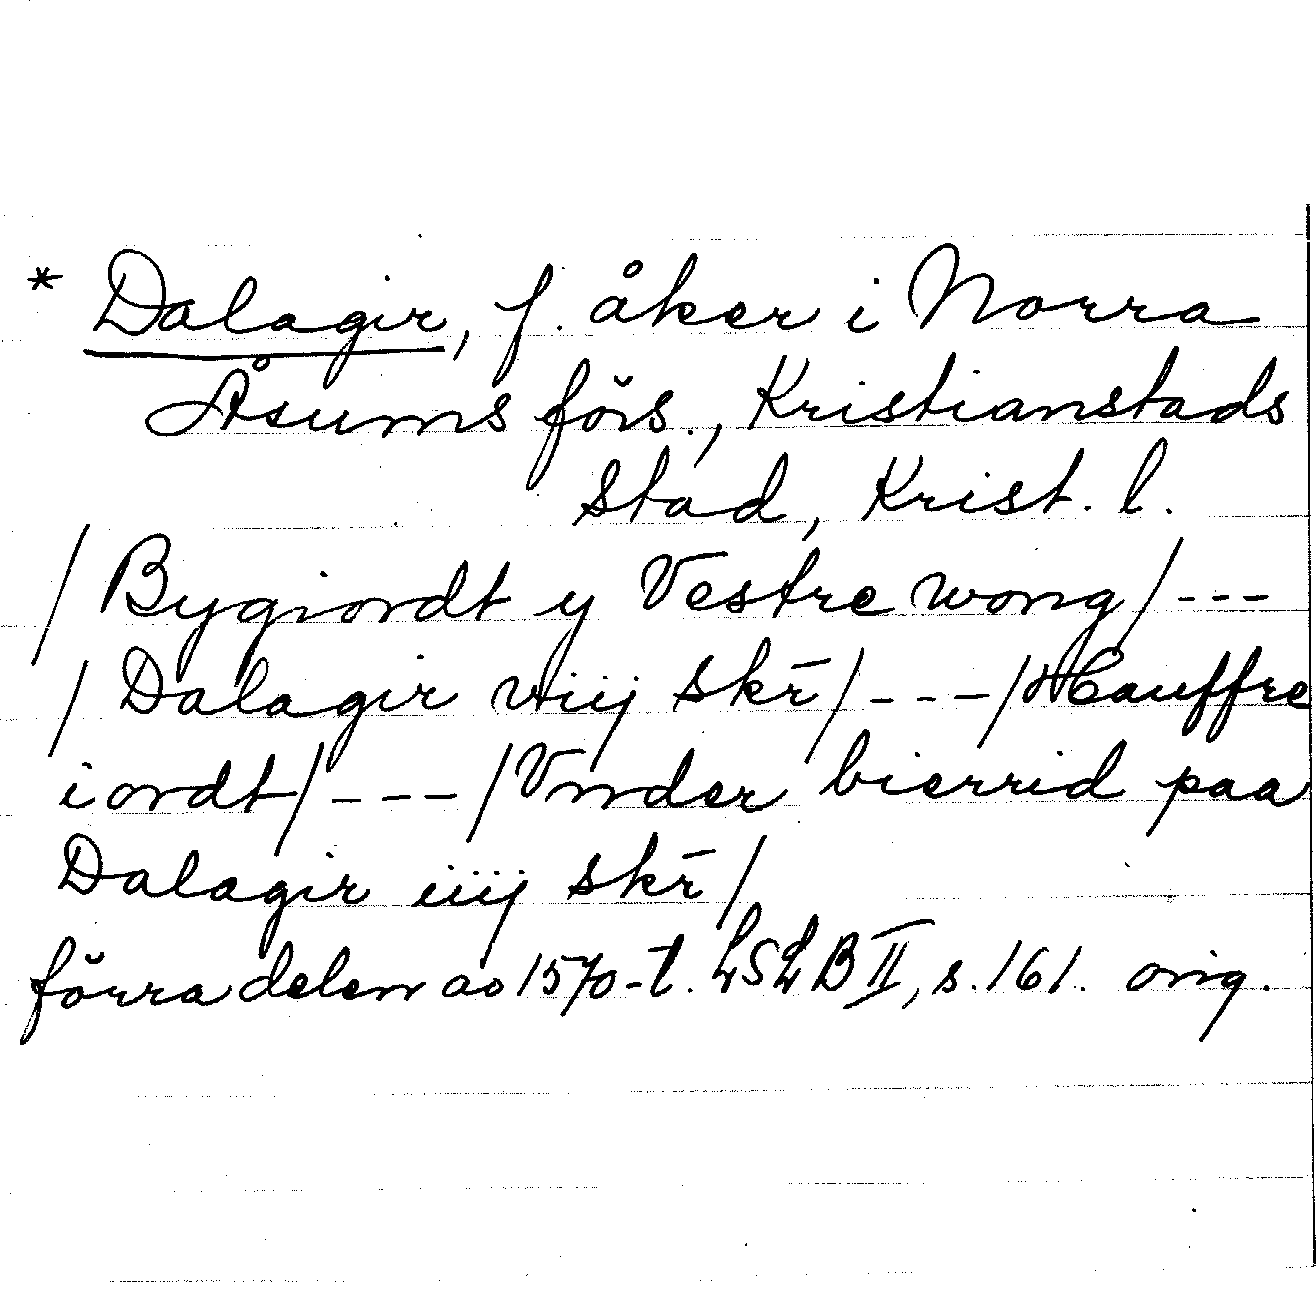 * Dalagir, f. åker i Norra
Åsums förs., Kristianstads
stad, Krist. l.
/ Bygiordt y Vestre wong / ---
/ Dalagir viiij skr̄ / --- / Hauffre
iordt / --- / Vnder bierrid paa
Dalagir iiij skr̄ /
förra delen av 1570-t. LSLB II, s. 161. orig.